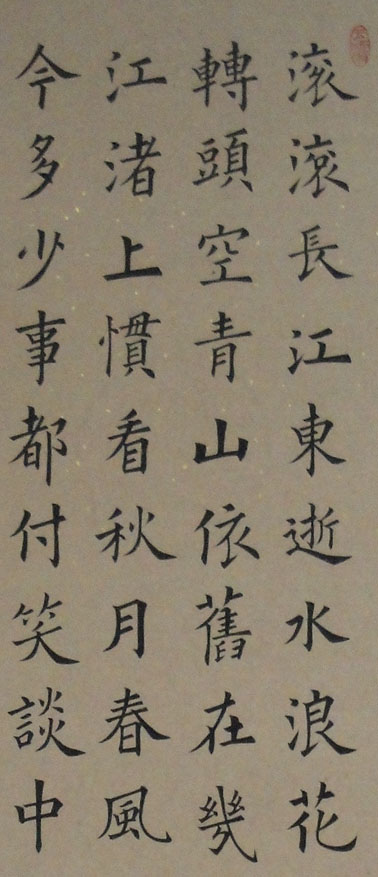 滚滚長江東逝水浪花
轉頭空青山依舊在幾
江渚上慣看秋月春風
今多少事都付笑談中